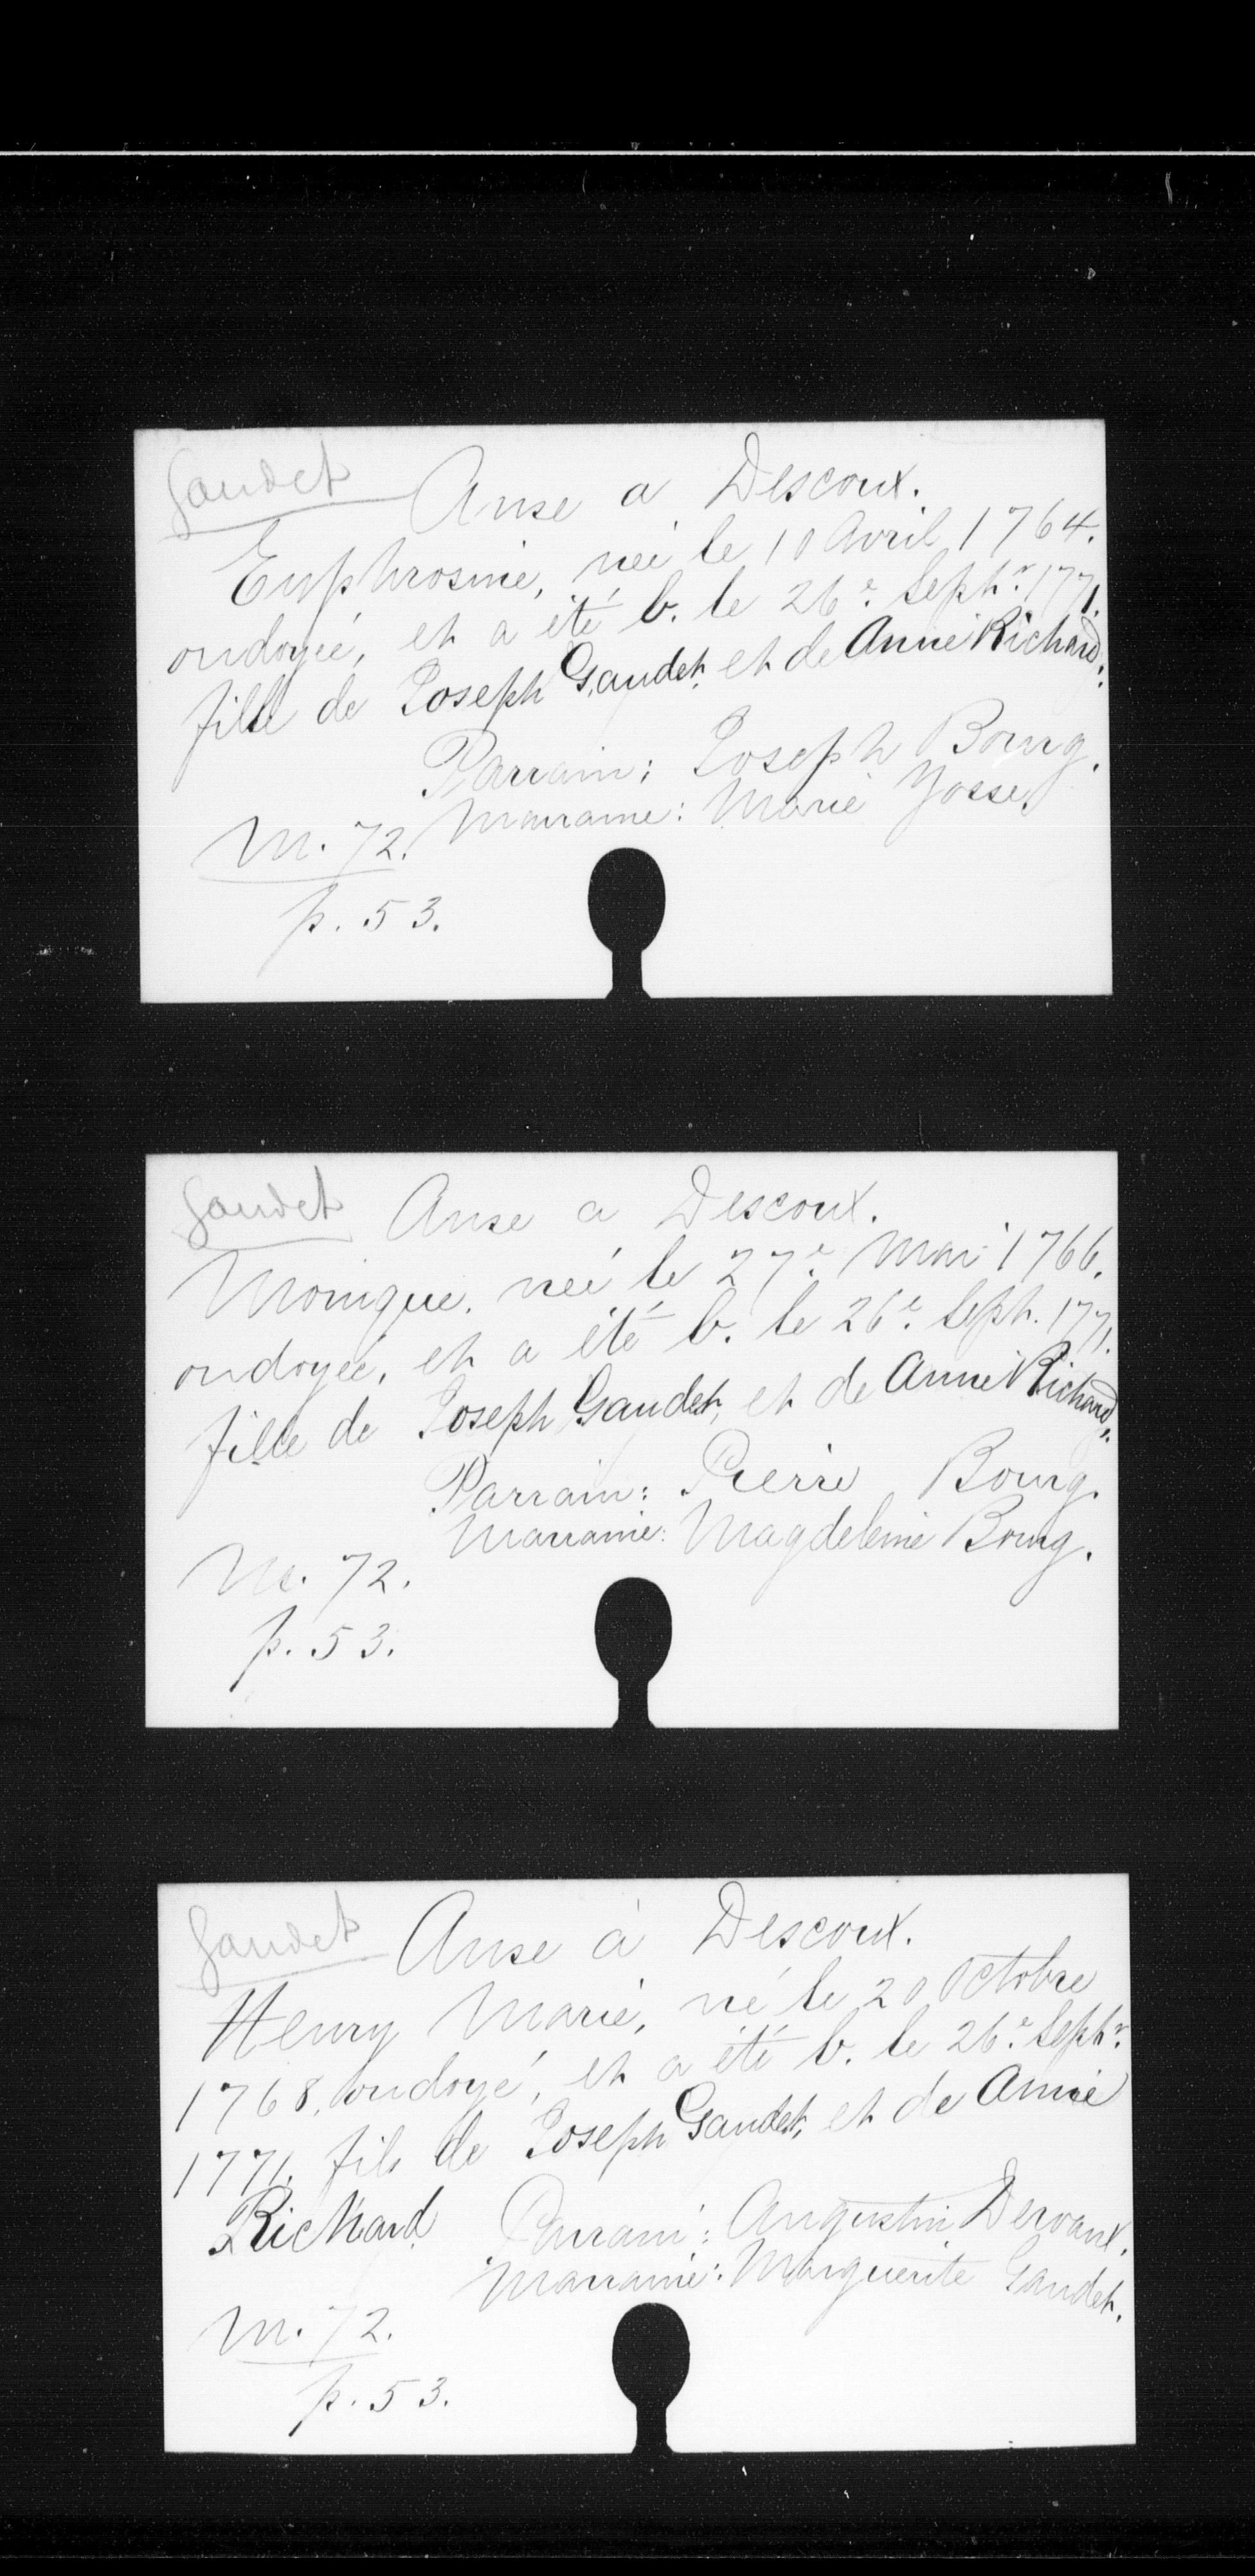 Gaudet Anse a Descoux.
Euphrosine, née le 10 Avril 1764.
ondoyée, et a été b. le 26e. Septr. 1771.
fille de Joseph Gaudet, et de Anne Richard.
Parrain: Joseph Bourg.
Marraine: Marie Josse.
M. 72.
p. 53.
Gaudet Anse a Descoux.
Monique, née le 27e. Mai 1766.
ondoyée, et a été b. le 26e. Sept. 1771.
fille de Joseph Gaudet, et de Anne Richard.
Parrain: Pierre Bourg.
Marraine: Magdeleine Bourg.
M. 72.
p. 53.
Gaudet Anse à Descoux.
Henry Marie, né le 20 Octobre
1768, ondoyé, et a été b. le 26e. Septr.
1771, fils de Joseph Gaudet, et de Anne
Richard Parrain: Augustin Dervaux.
Marraine: Marguerite Gaudet.
M. 72.
p. 53.